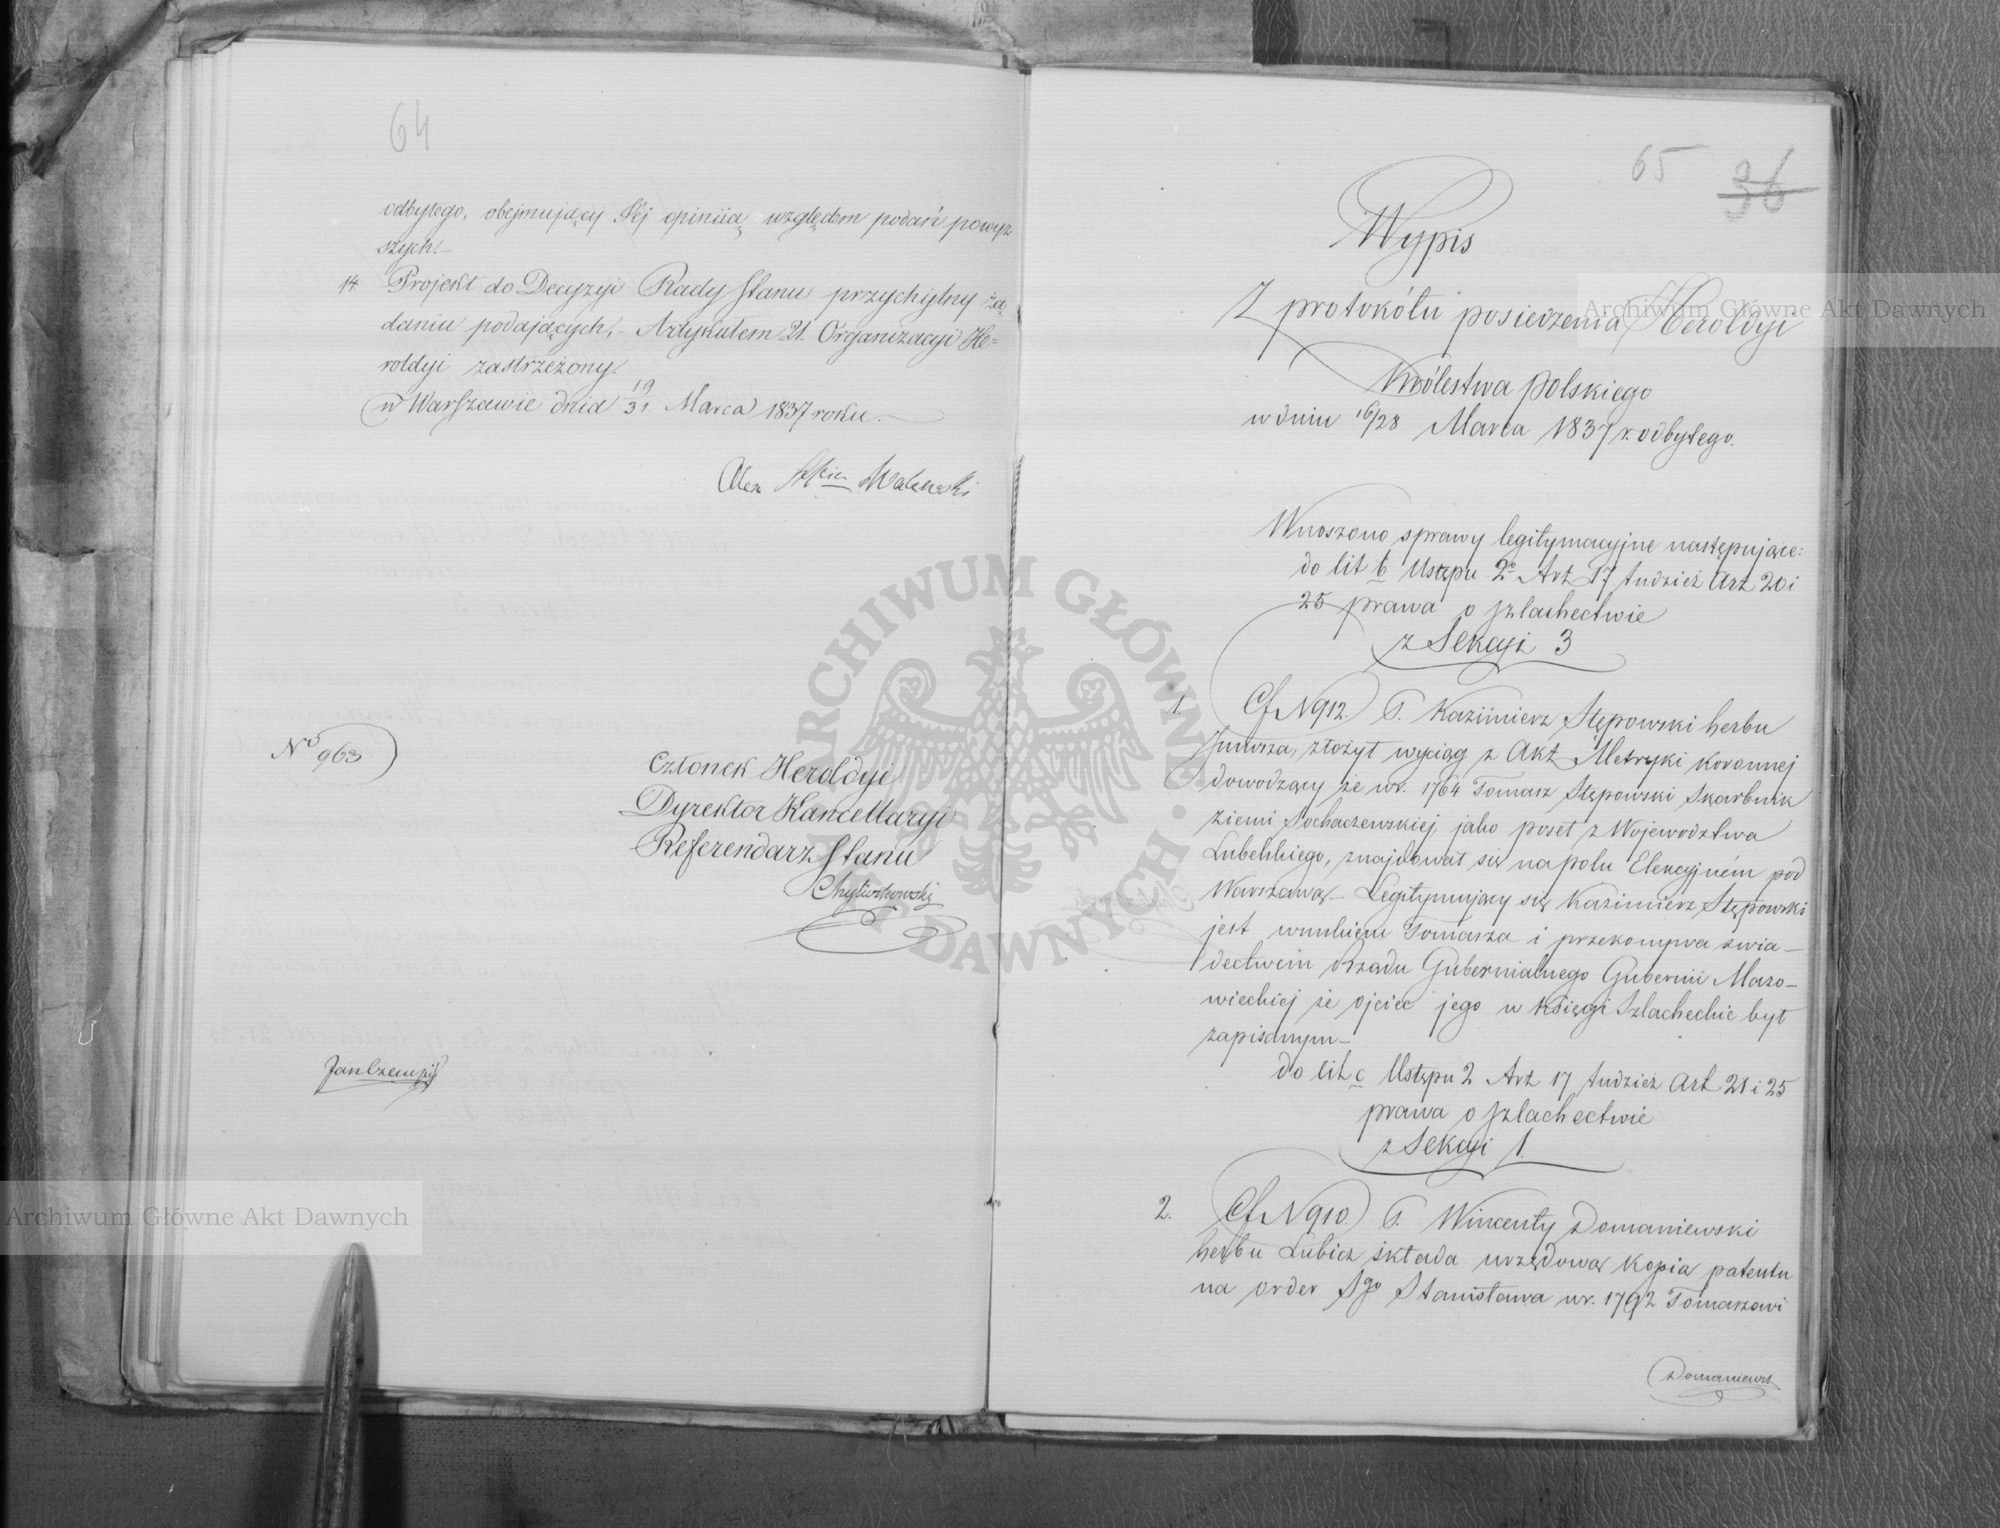 64
odbytego, obejmujący Jej opiniią względem podań powyż-
szych.-
14 Projekt do Decyzyi Rady Stanu przychylny żą-
daniu podających,- Artykułem 21. Organizacyi He=
roldyi zastrzeżony.
w Warszawie dnia 19/31. Marca 1837 roku.
Alex Walewski
No 963
Członek Heroldyi
Dyrektor Kancellaryi
Referendarz Stanu
Chyliczkowski
65 36
Wypis
Z protokółu posiedzenia Heroldyi
Królestwa Polskiego
w dniu 16/28 Marca 1837 r. odbytego.
Wnoszono sprawy legitymacyjne następujące:
do lit b Ustępu 2o Art 17 tudzież Art 20 i
25 prawa o szlachectwie
z Sekcyi 3
1. Cf. N 912. P. Kazimierz Stępowski herbu
Junosza, złożył wyciąg z Akt Metryki koronnej
dowodzący że w r. 1764 Tomasz Stępowski Skarbnik
ziemi Sochaczewskiej jako poseł z Wojewodztwa
Lubelskiego, znajdował się na polu Elekcyjném pod
Warszawą - Legitymujący się Kazimierz Stępowski
jest wnukiem Tomasza i przekonywa swia-
dectwem Rządu Gubernialnego Gubernii Mazo-
wieckiej że ojciec jego w Księgi Szlacheckie był
zapisanym -
do lit c Ustępu 2 Art 17 tudzież Art 21 i 25
prawa o szlachectwie
z Sekcyi 1.
2. Cf. N 910. P. Wincenty Domaniewski
herbu Lubicz składa urzędową kopią patentu
na order Sgo Stanisława w r. 1792 Tomaszowi
Domaniews
Archiwum Główne Akt Dawnych
Archiwum Główne Akt Dawnych
ARCHIWUM GŁÓWNE AKT DAWNYCH